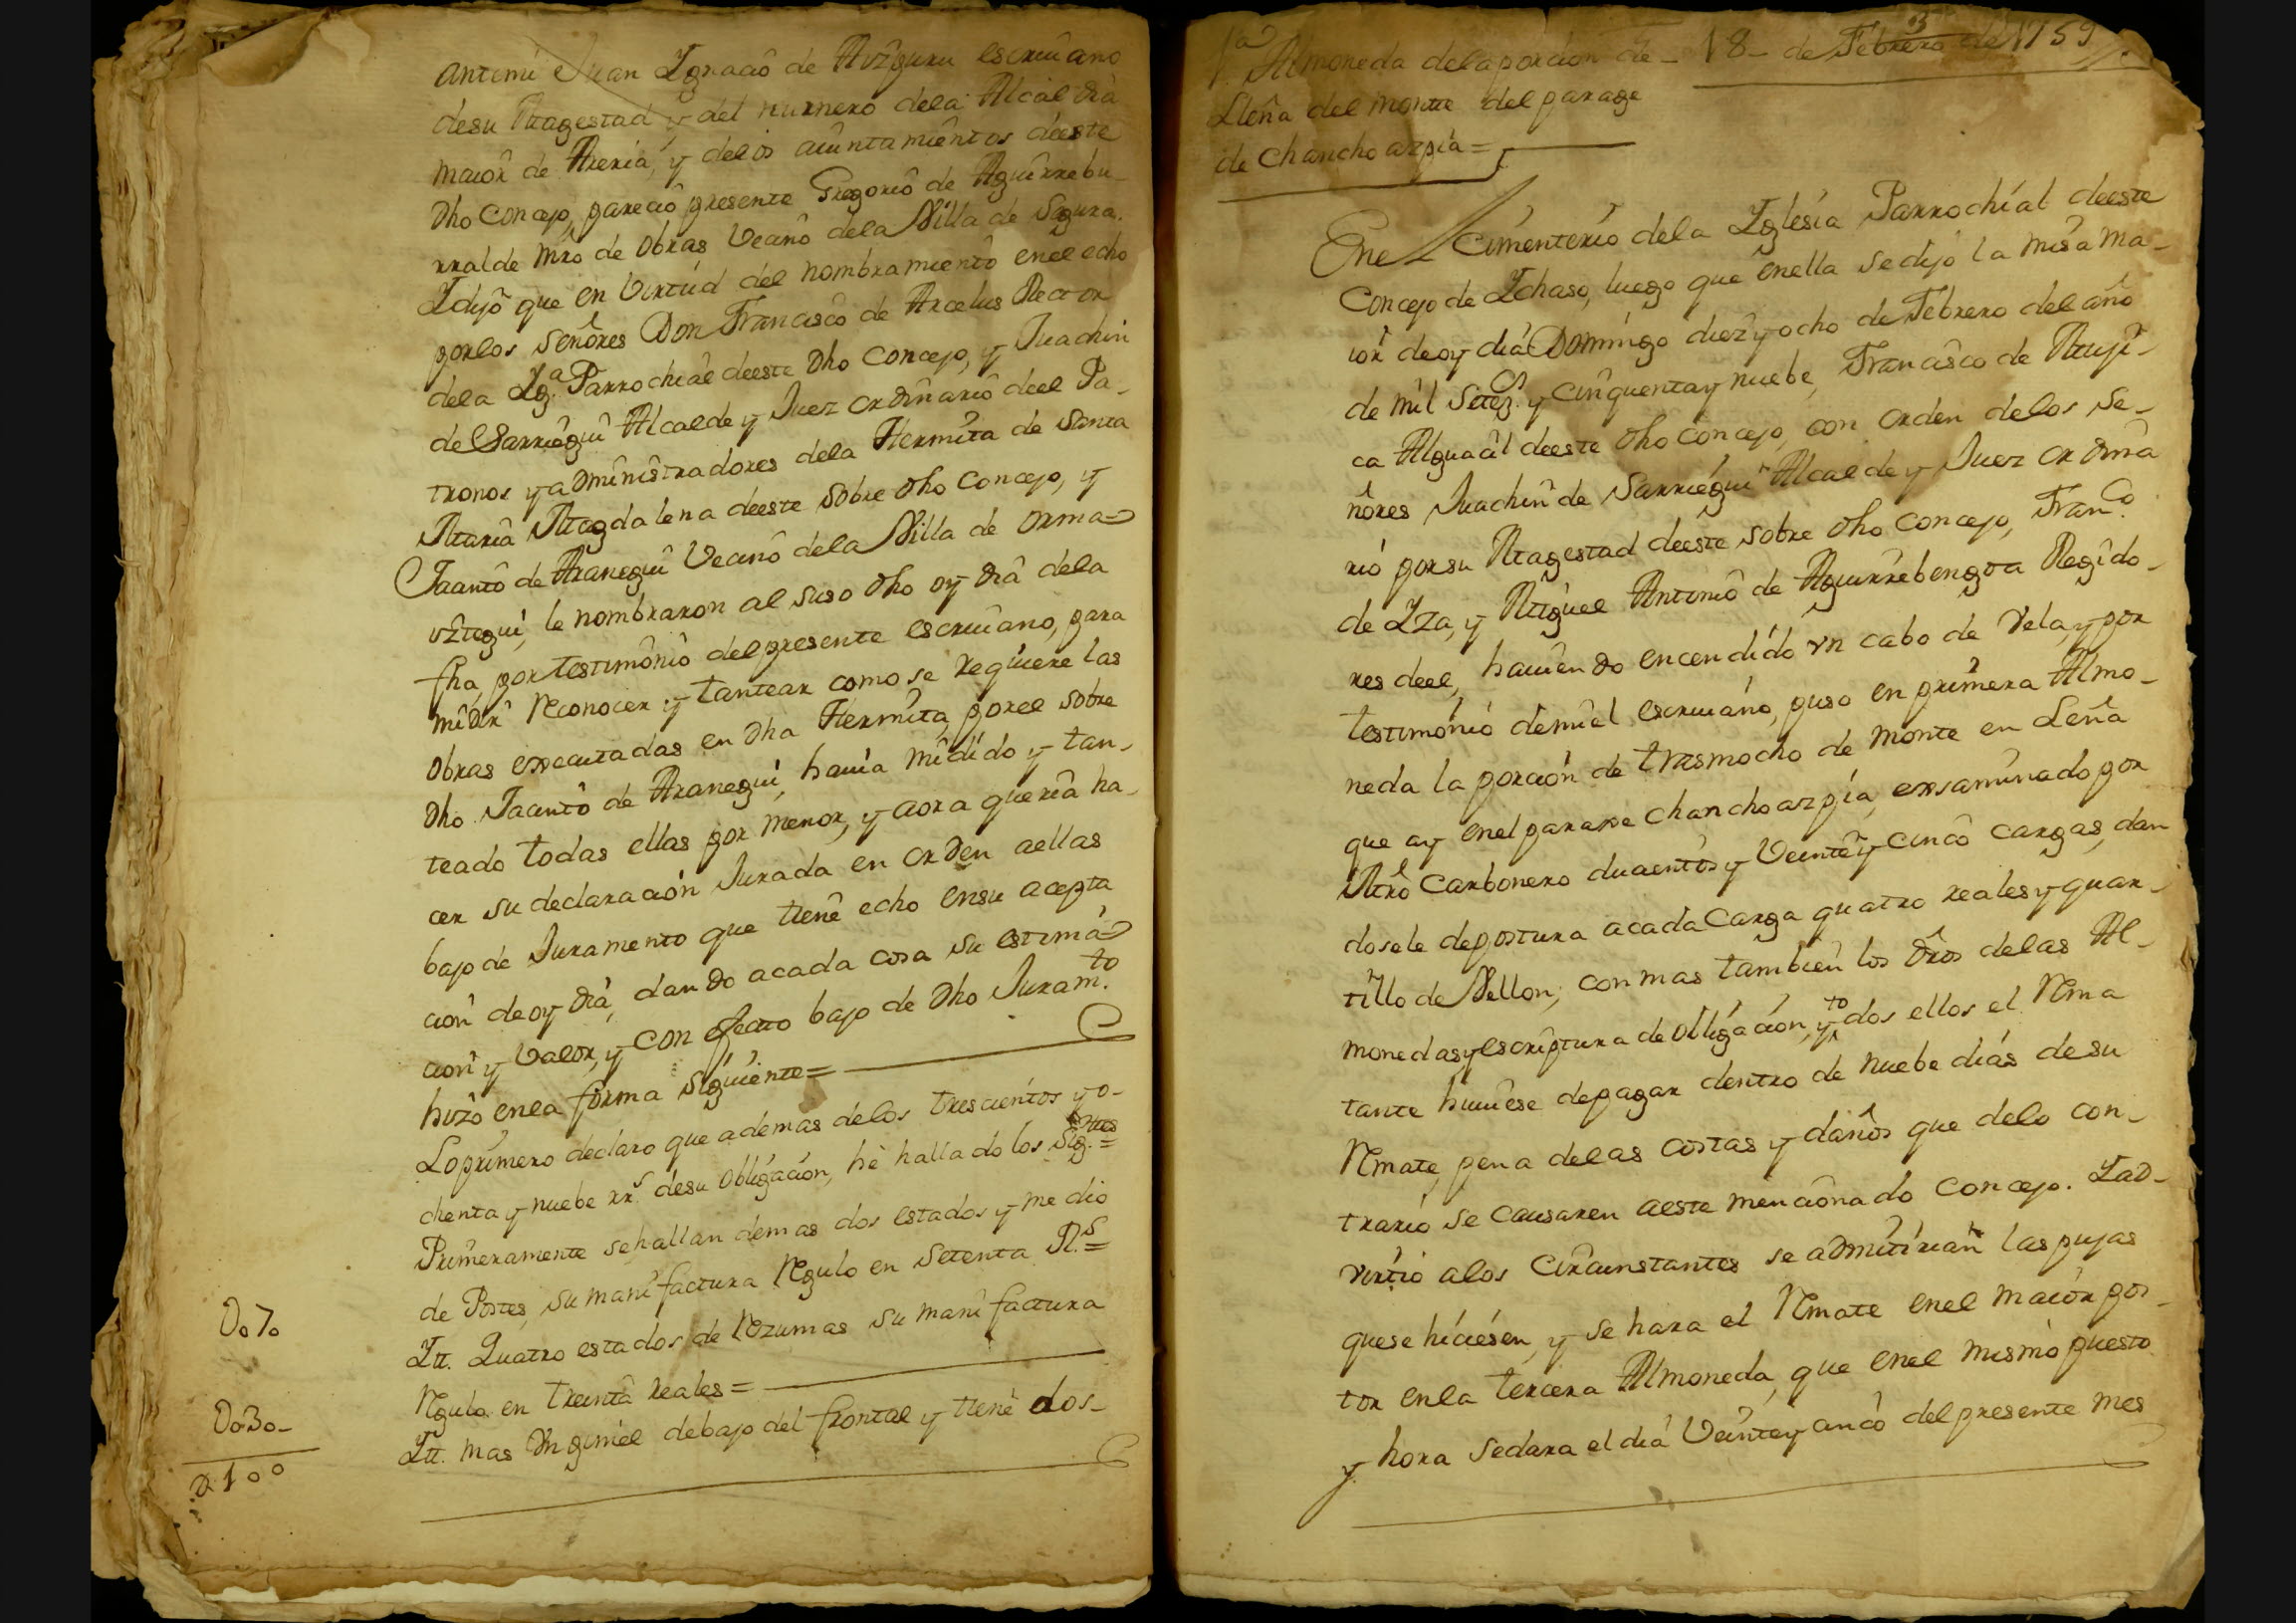 antemi Juan Ygnacio de Aizpuru escriuano
desu Magestad y del numero dela Alcaldia
maior de Areria, y delos aiuntamientos deeste
dho Concejo, parecio presente Gregorio de Aguirrebu-
rralde Mro de Obras Vecino dela Villa de Segura.
Y dijo que en Virtud del nombramiento enel echo
porlos Señores Don Francisco de Arcelus Rector
dela Yg.ª Parrochial deeste dho Concejo, y Juachin
de Sarriegui Alcalde y Juez ordinario deel Pa-
tronos y administradores dela Hermita de Santa
Maria Magdalena deeste sobre dho Concejo, y
Jacinto de Aranegui Vecino dela Villa de Orma=
iztegui, le nombraron al suso dho oy dia dela
fha, por testimonio delpresente escriuano, para
midir Reconocer y tantear como se requiere las
obras executadas en dha Hermita, porel sobre
dho Jacinto de Aranegui, hauia midido y tan-
teado todas ellas por menor, y aora queria ha-
cer su declaracion Jurada en orden aellas
bajo de Juramento que tiene echo ensu acepta
cion deoy dia, dando acada cosa su estima=
cion y Valor, y con efecto bajo de dho Juram.to
hizo enla forma siguiente=
Loprimero declaro que ademas delos trescientos y o-
chenta y nuebe rr.s desu Obligacion, he hallado los Sig.ntes=
Primeramente sehallan demas dos estados y medio
de Postes, su manifactura Regulo en Setenta R.s=
Ytt. Quatro estados de Rezumas su manifactura
Regulo en treinta reales=
Ytt. mas Un piniel debajo del frontal y tiene dos-
0070
0030-
0100
1ª Almoneda dela porcion de
Lleña del monte del parage
de Chancho azpia=
18- de Febrero de 1759
Enel Cimenterio dela Yglesia Parrochial deeste
Concejo de Ychaso, luego que enella sedijo la misa ma-
ior deoy dia Domingo diez y ocho de Febrero del año
de mil Setez.s y cinquenta y nuebe, Francisco de Muji-
ca Alguacil deeste dho Concejo, con orden delos Se-
ñores Juachin de Sarriegui Alcalde y Juez ordina
rio porsu Magestad deeste sobre dho Concejo, Fran.co
de Yza, y Miguel Antonio de Aguirrebengoa Regido-
res deel, hauiendo encendido vn cabo de Vela, y por
testimonio demi el escriuano, puso en primera Almo-
neda la porcion de trasmocho de monte en Leña
que ay enel paraxe Chanchoazpia, exsaminado por
Mro Carbonero ducientos y Veinte y cinco cargas, dan
dosele depostura acada Carga quatro reales y quar-
tillo de Vellon, con mas tambien los dros delas Al-
monedas y escriptura de Obligacion, y todos ellos el Rma
tante huuiese depagar dentro de nuebe dias desu
Rmate, pena delas costas y daños que delo con-
trario se causaren aeste mencionado Concejo. Yad-
virtio alos Circunstantes se admitirian las pujas
quese hiciesen, y se hara el Rmate enel maior pos-
tor enla tercera Almoneda, que enel mismo puesto
y hora sedara el dia Veinte y cinco delpresente mes